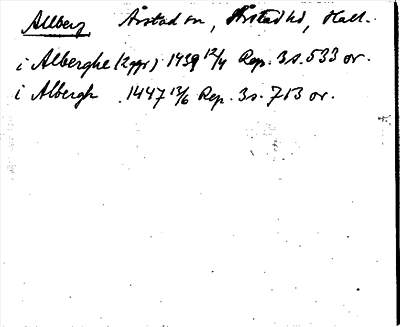 Allberg Årstad sn, Årstad hd, Hall.
i Alberghe (2 ggr) 1439 12/4 Rep. 3 s. 533 or.
i Albergh 1447 13/6 Rep. 3 s. 713 or.